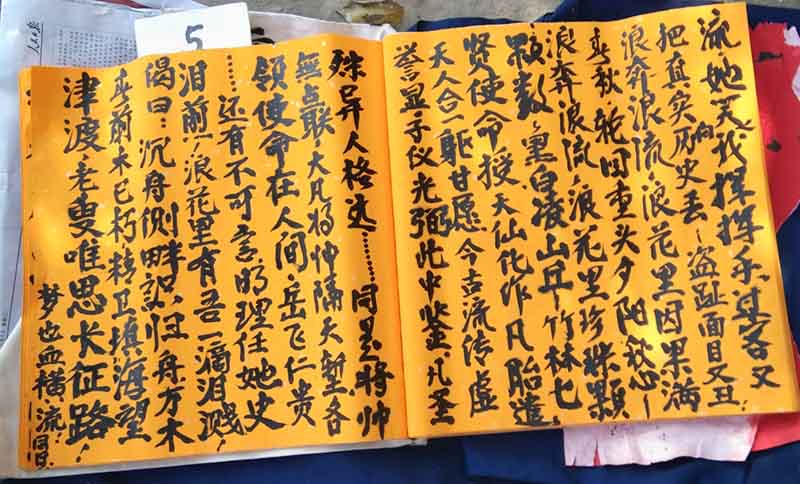 5
流她笑我挥挥手过客又
把真实历史丢 盗跖面目又丑
浪奔浪流·浪花里因果满
春秋·轮回重头夕阳我心
浪奔浪流·浪花里珍珠颗
颗数·重自凌山丘·竹林七
贤使命授天仙化作凡胎遣
天人合一躯甘愿今古流传虚
誉显手仪光弼此中鉴凡圣
殊异人格达……同是将帅
無点联·大凡将帅隔天堑各
领使命在人间·岳飞仁贵
……还有不可言明理任她史
泪前！浪花里有吾一滴泪溅！
偈曰：沉舟侧畔 归舟方木
春前木已朽精卫填海望
津渡·老叟唯思长征路！
梦也血横流！